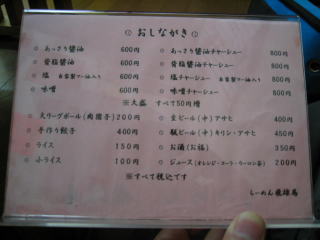 おしながき
○ あっさり醤油 600円
○ 背脂醤油 600円
○ 塩 自家製マー油入り 600円
○ 味噌 600円
○ あっさり醤油チャーシュー 800円
○ 背脂醤油チャーシュー 800円
○ 塩チャーシュー 自家製マー油入り 800円
○ 味噌チャーシュー 800円
※大盛 すべて50円増
○ 大リーグボール(肉団子) 200円
○ 手作り餃子 400円
○ ライス 150円
○ 小ライス 100円
○ 生ビール(中)アサヒ 400円
○ 瓶ビール(中)キリン・アサヒ 450円
○ お酒(お福) 350円
○ ジュース(オレンジ・コーラ・ウーロン茶) 200円
※すべて税込です
らーめん飛雄馬